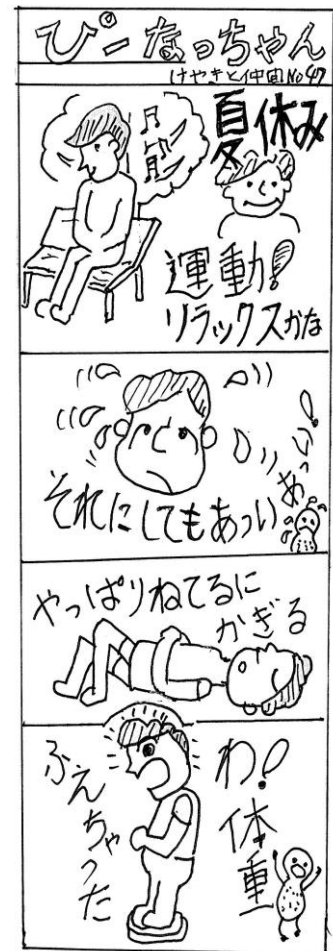 ぴーなっちゃん
けやきと仲間No47
夏休み
運動!
リラックスかな
それにしてもあつい
あっい!
やっぱりねてるに
かぎる
わ!
体重
ふえちゃった